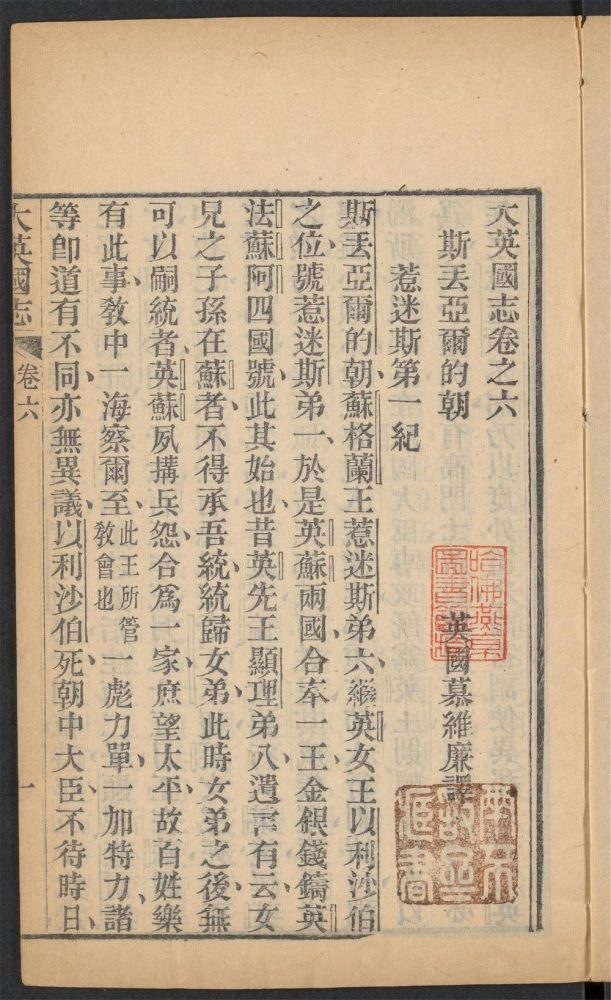 大英國志卷之六
斯丟亞爾的朝　英國慕維廉譯
惹迷斯第一紀
斯丟亞爾的朝、蘇格蘭王惹迷斯第六、繼英女王以利沙伯
之位、號惹迷斯弟一、於是英蘇兩國、合奉一王、金銀錢鑄英
法蘇阿四國號、此其始也、昔英先王顯理弟八遺言有云、女
兄之子孫在蘇者、不得承吾統、統歸女弟、此時女弟之後、無
可以嗣統者、英蘇夙搆兵怨、合爲一家、庶望太平、故百姓樂
有此事、敎中一海察爾至、此王所管敎會也一彪力單、一加特力、諸
等卽道有不同、亦無異議、以利沙伯死、朝中大臣、不待時日、
大英國志　卷六　一